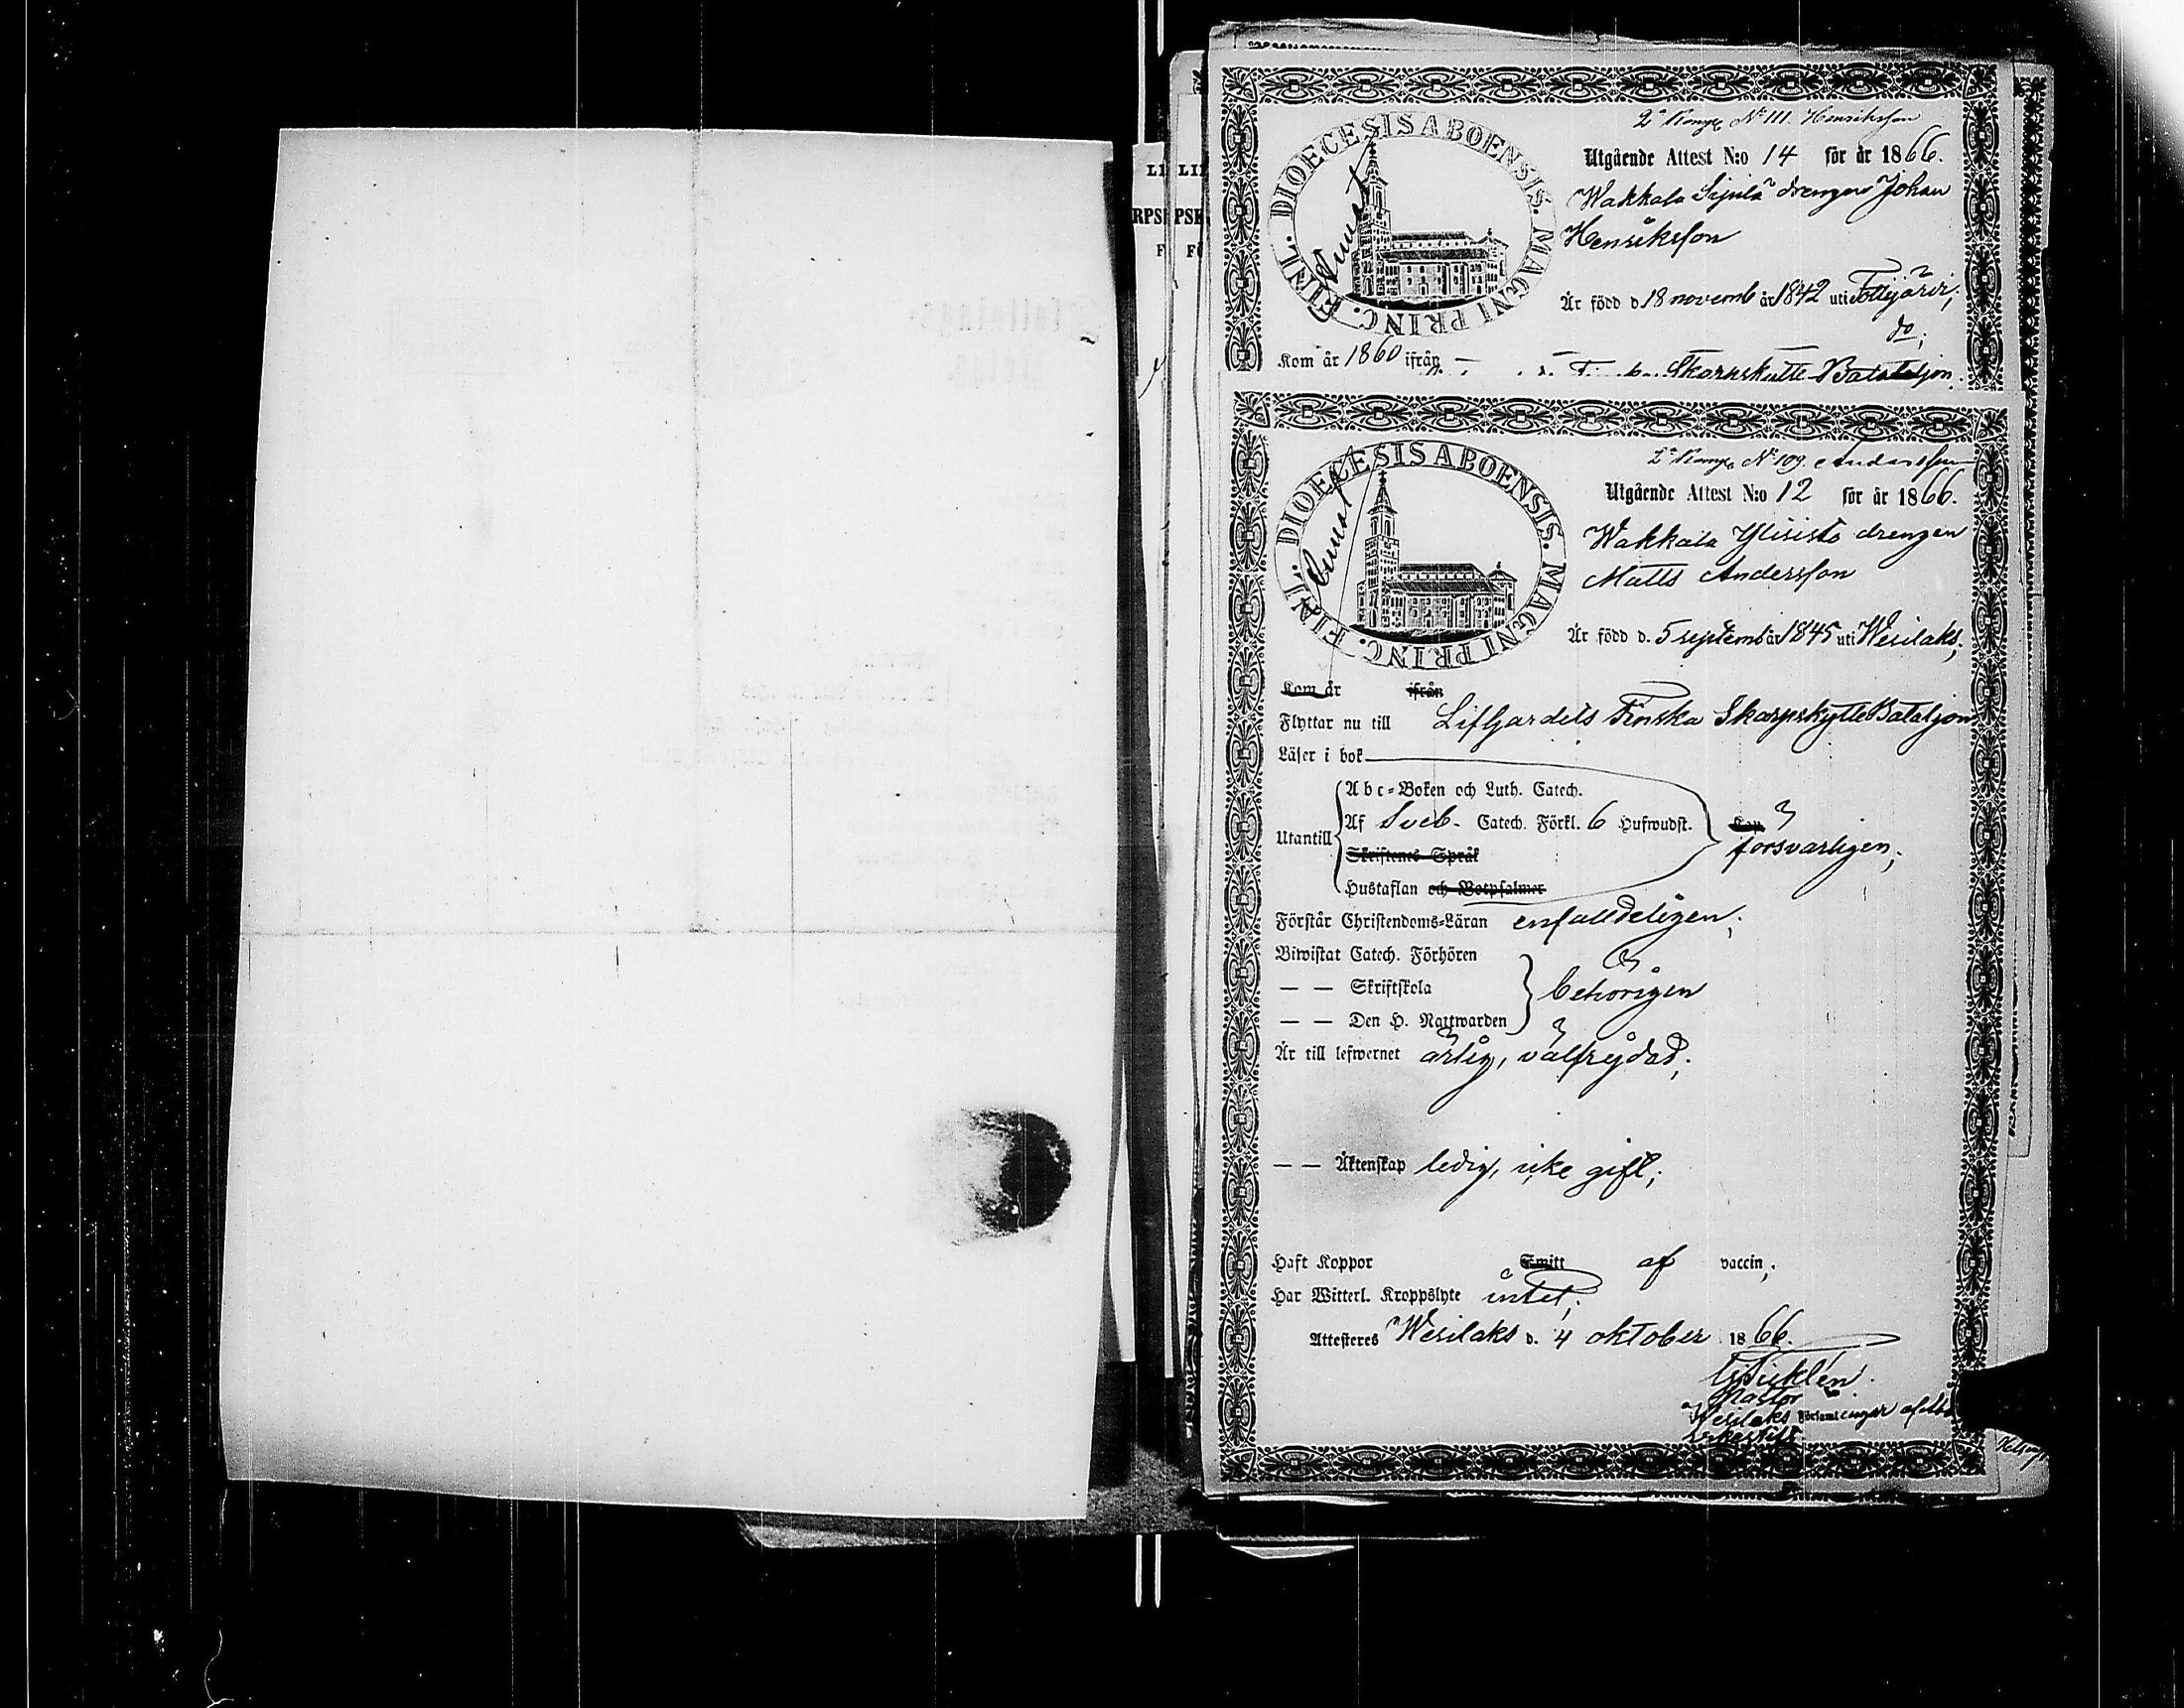 2a Komp. No 111. Henriksson
FINL. DIOECESIS ABOENSIS. MAGNI PRINC.
Utgående Attest N:o 14 för år 1866.
Wakkala Sipilä drengen Johan
Henriksson
Är född d 18 novemb år 1842 uti Tottijärvi;
do;
Kom år 1860 ifrån
Skarpskytte Bataljon
2a Komp. No 109. Andersson
FINL. DIOECESIS ABOENSIS. MAGNI PRINC.
Utgående Attest N:o 12 för år 1866.
Wakkala Ylisisto drengen
Matts Andersson
Är född d. 5 septemb år 1845 uti Wesilaks;
Kom år ifrån
Flyttar nu till Lifgardets Finska Skarpskytte Bataljon
Läser i bok
Abc-Boken och Luth. Catech.
Utantill Af Sveb. Catech. Förkl. 6 Hufwudst. Kap
försvarligen;
Skriftenes Språk
Hustaflan och Botpsalmer
Förstår Christendoms-Läran enfalldeligen;
Biwistat Catech. Förhören
— — Skriftskola behörigen
— — Den H. Nattwarden
Är till lefwernet ärlig, välfrejdad;
— — Äktenskap ledig, icke gift;
Haft Koppor Smitt af vaccin;
Har Witterl. Kroppslyte intet;
Attesteres Wesilaks d. 4 oktober 1866.
Pastor
i Wesilaks Församlingar af Åbo
Erkestift
LI LI
RPSK PSK
F FÖ